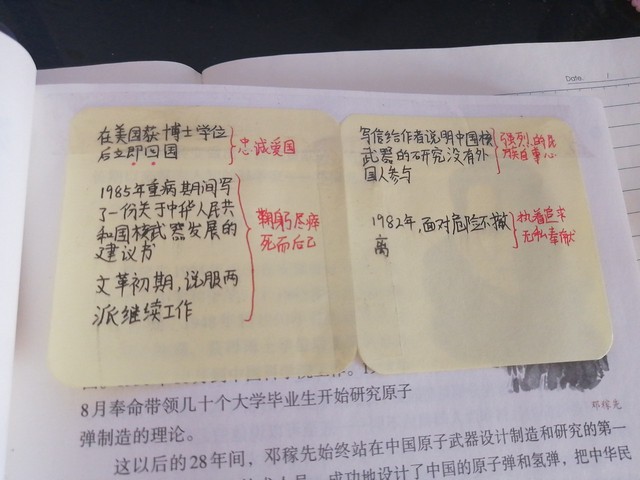 Date. /
在美国获博士学位
后立即回国
忠诚爱国
1985年重病期间写
了一份关于中华人民共
和国核武器发展的
建议书
文革初期，说服两
派继续工作
鞠躬尽瘁
死而后已
写信给作者说明中国核
武器的研究没有外
国人参与
强烈的民
族自尊心
1982年，面对危险不撤
离
执着追求
无私奉献
8月奉命带领几十个大学毕业生开始研究原子
弹制造的理论。
邓稼先
这以后的28年间，邓稼先始终站在中国原子武器设计制造和研究的第一
成功地设计了中国的原子弹和氢弹，把中华民